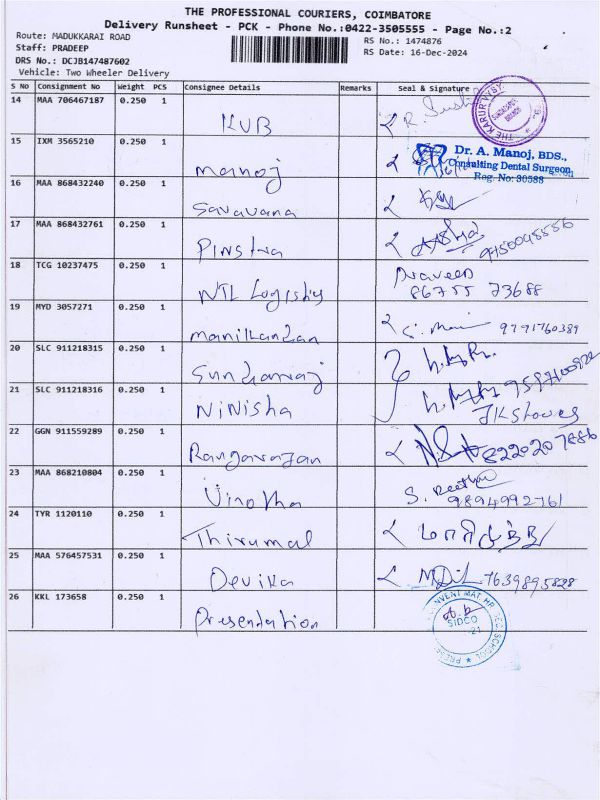 THE PROFESSIONAL COURIERS, COIMBATORE
Delivery Runsheet - PCK - Phone No.:0422-3505555 - Page No.:2
Route: MADUKKARAI ROAD
RS No.: 1474876
Staff: PRADEEP
RS Date: 16-Dec-2024
DRS No.: DCJB147487602
Vehicle: Two Wheeler Delivery
S No Consignment No Weight PCS Consignee Details Remarks Seal & Signature
14 MAA 706467187 0.250 1 KVB
THE KARUR VYSY
15 IXM 3565210 0.250 1 Manoj
Dr. A. Manoj, BDS.,
Consulting Dental Surgeon
Reg. No: 30588
16 MAA 868432240 0.250 1 Saravana
17 MAA 868432761 0.250 1
18 TCG 10237475 0.250 1 NTL Logistiy Praveen
86755 73688
19 MYD 3057271 0.250 1 Manikandan 9791760389
20 SLC 911218315 0.250 1
21 SLC 911218316 0.250 1 Ninisha
JK Stoves
22 GGN 911559289 0.250 1 Rangarajan 8220207886
23 MAA 868210804 0.250 1 Vinotha S.
9894992761
24 TYR 1120110 0.250 1 Thirumal
25 MAA 576457531 0.250 1 Devika 7639895828
26 KKL 173658 0.250 1 Presendation
SIDCO
21